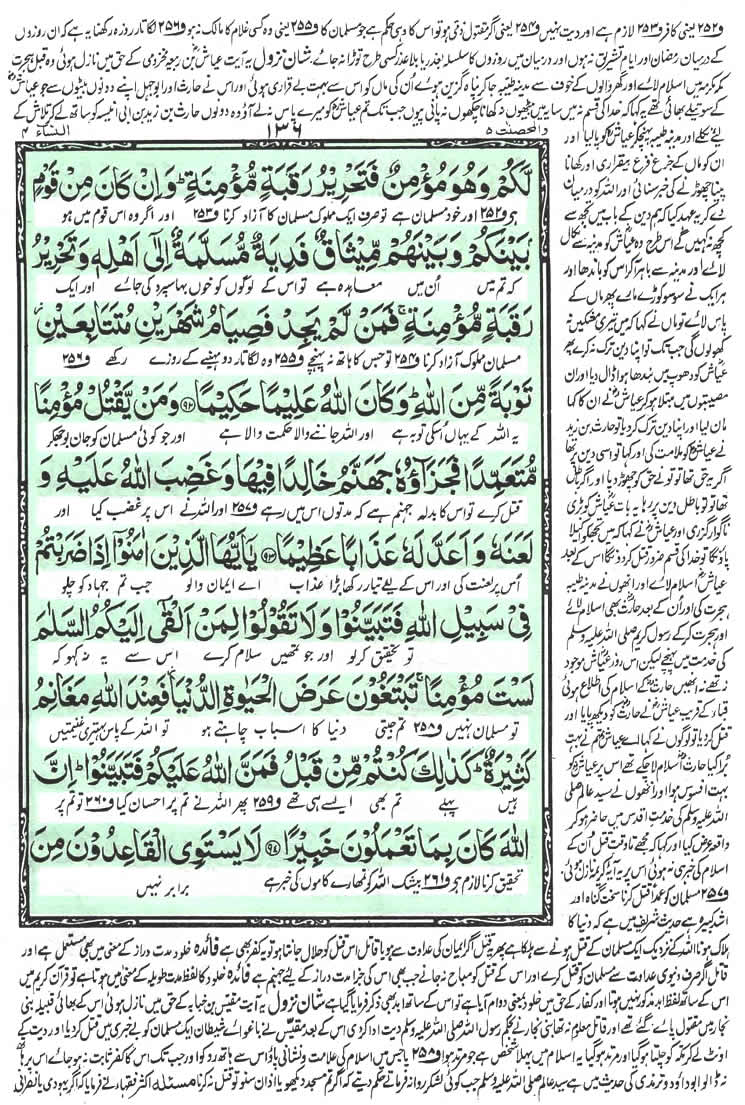 و۲۵۲ یعنی کافر و۲۵۳ لازم ہے اور دیت نہیں و۲۵۴ یعنی اگر مقتول ذمی ہو تو اس کا وہی حکم ہے جو مسلمان کا و۲۵۵ یعنی وہ کسی غلام کا مالک نہ ہو و۲۵۶ لگاتار روزہ رکھنا یہ ہے کہ ان روزوں
کے درمیان رمضان اور ایام تشریق نہ ہوں اور درمیان میں روزوں کا سلسلہ بعذر یا بلا عذر کسی طرح توڑا نہ جائے۔ شان نزول یہ آیت عیاش بن ربیعہ مخزومی کے حق میں نازل ہوئی وہ قبل ہجرت
مکہ مکرمہ میں اسلام لائے اور گھر والوں کے خوف سے مدینہ طیبہ جا کر پناہ گزین ہوئے اُن کی ماں کو اس سے بہت بے قراری ہوئی اور اس نے حارث اور ابوجہل اپنے دونوں بیٹوں سے جو عیاش
کے سوتیلے بھائی تھے یہ کہا کہ خدا کی قسم نہ میں سایہ میں بیٹھوں نہ کھانا چکھوں نہ پانی پیوں جب تک تم عیاش کو میرے پاس نہ لے آؤ وہ دونوں حارث بن زید بن ابی انیسہ کو ساتھ لے کر تلاش کے
والمحصنت ۵
۱۳۶
النساء ۴
لَّكُمْ وَهُوَ مُؤْمِنٌ فَتَحْرِيْرُ رَقَبَةٍ مُّؤْمِنَةٍ ؕ وَاِنْ كَانَ مِنْ قَوْمٍۭ
ہے و۲۵۲ اور خود مسلمان ہے تو صرف ایک مملوک مسلمان کا آزاد کرنا و۲۵۳ اور اگر وہ اس قوم میں ہو
بَيْنَكُمْ وَبَيْنَهُمْ مِّيْثَاقٌ فَدِيَةٌ مُّسَلَّمَةٌ اِلٰٓى اَهْلِهٖ وَتَحْرِيْرُ
کہ تم میں اُن میں معاہدہ ہے تو اس کے لوگوں کو خوں بہا سپرد کی جائے اور ایک
رَقَبَةٍ مُّؤْمِنَةٍ ۚ فَمَنْ لَّمْ يَجِدْ فَصِيَامُ شَهْرَيْنِ مُتَتَابِعَيْنِ ؗ
مسلمان مملوک آزاد کرنا و۲۵۴ تو جس کا ہاتھ نہ پہنچے و۲۵۵ وہ لگاتار دو مہینے کے روزے رکھے و۲۵۶
تَوْبَةً مِّنَ اللّٰهِ ؕ وَكَانَ اللّٰهُ عَلِيْمًا حَكِيْمًا ﴿۹۲﴾ وَمَنْ يَّقْتُلْ مُؤْمِنًا
یہ اللہ کے یہاں اُسکی توبہ ہے اور اللہ جاننے والا حکمت والا ہے اور جو کوئی مسلمان کو جان بوجھ کر
مُّتَعَمِّدًا فَجَزَآؤُهٗ جَهَنَّمُ خَالِدًا فِيْهَا وَغَضِبَ اللّٰهُ عَلَيْهِ وَ
قتل کرے تو اس کا بدلہ جہنم ہے کہ مدتوں اس میں رہے و۲۵۷ اور اللہ نے اس پر غضب کیا اور
لَعَنَهٗ وَاَعَدَّ لَهٗ عَذَابًا عَظِيْمًا ﴿۹۳﴾ يٰٓاَيُّهَا الَّذِيْنَ اٰمَنُوْٓا اِذَا ضَرَبْتُمْ
اُس پر لعنت کی اور اس کے لیے تیار رکھا بڑا عذاب اے ایمان والو جب تم جہاد کو چلو
فِيْ سَبِيْلِ اللّٰهِ فَتَبَيَّنُوْا وَلَا تَقُوْلُوْا لِمَنْ اَلْقٰٓى اِلَيْكُمُ السَّلٰمَ
تو تحقیق کر لو اور جو تمھیں سلام کرے اس سے یہ نہ کہو کہ
لَسْتَ مُؤْمِنًا ۚ تَبْتَغُوْنَ عَرَضَ الْحَيٰوةِ الدُّنْيَا ؗ فَعِنْدَ اللّٰهِ مَغَانِمُ
تو مسلمان نہیں و۲۵۸ تم جیتی دنیا کا اسباب چاہتے ہو تو اللہ کے پاس بہتیری غنیمتیں
كَثِيْرَةٌ ؕ كَذٰلِكَ كُنْتُمْ مِّنْ قَبْلُ فَمَنَّ اللّٰهُ عَلَيْكُمْ فَتَبَيَّنُوْا ؕ اِنَّ
ہیں پہلے تم بھی ایسے ہی تھے و۲۵۹ پھر اللہ نے تم پر احسان کیا و۲۶۰ تو تم پر
اللّٰهَ كَانَ بِمَا تَعْمَلُوْنَ خَبِيْرًا ﴿۹۴﴾ لَا يَسْتَوِي الْقَاعِدُوْنَ مِنَ
تحقیق کرنا لازم ہے و۲۶۱ بیشک اللہ کو تمھارے کاموں کی خبر ہے برابر نہیں
لیے نکلے اور مدینہ طیبہ پہنچ کر عیاش کو پا لیا اور
ان کو ماں کے جزع فزع بیقراری اور کھانا
پینا چھوڑنے کی خبر سنائی اور اللہ کو درمیان
دے کر یہ عہد کیا کہ ہم دین کے باب میں تجھ سے
کچھ نہ کہیں گے اس طرح وہ عیاش کو مدینہ سے نکال
لائے اور مدینہ سے باہر آ کر اس کو باندھا اور
ہر ایک نے سو سو کوڑے مارے پھر ماں کے
پاس لائے تو ماں نے کہا کہ میں تیری مشکیں نہ
کھولوں گی جب تک تو اپنا دین ترک نہ کرے پھر
عیاش کو دھوپ میں بندھا ہوا ڈال دیا اور ان
مصیبتوں میں مبتلا ہو کر عیاش نے ان کا کہا
مان لیا اور اپنا دین ترک کر دیا تو حارث بن زید
نے عیاش کو ملامت کی اور کہا تو اسی دین پر تھا
اگر یہ حق تھا تو تو نے حق کو چھوڑ دیا اور اگر باطل
تھا تو تو باطل دین پر رہا یہ بات عیاش کو بڑی
ناگوار گزری اور عیاش نے کہا کہ میں تجھ کو اکیلا
پاؤں گا تو خدا کی قسم ضرور قتل کر دوں گا اس کے بعد
عیاش اسلام لائے اور انھوں نے مدینہ طیبہ
ہجرت کی اور اُن کے بعد حارث بھی اسلام لائے
اور ہجرت کر کے رسول کریم صلی اللہ علیہ وسلم
کی خدمت میں پہنچے لیکن اس روز عیاش موجود
نہ تھے نہ انھیں حارث کے اسلام کی اطلاع ہوئی
قباء کے قریب عیاش نے حارث کو دیکھ پایا اور
قتل کر دیا تو لوگوں نے کہا اے عیاش تم نے بہت
بُرا کیا حارث اسلام لا چکے تھے اس پر عیاش کو
بہت افسوس ہوا اور انھوں نے سید عالم صلی
اللہ علیہ وسلم کی خدمت اقدس میں حاضر ہو کر
واقعہ عرض کیا اور کہا کہ مجھے تا وقت قتل اُن کے
اسلام کی خبر ہی نہ ہوئی اس پر یہ آیۂ کریمہ نازل ہوئی
و۲۵۷ مسلمان کو عمداً قتل کرنا سخت گناہ اور
اشد کبیرہ ہے حدیث شریف میں ہے کہ دنیا کا
ہلاک ہونا اللہ کے نزدیک ایک مسلمان کے قتل ہونے سے ہلکا ہے پھر یہ قتل اگر ایمان کی عداوت سے ہو یا قاتل اس قتل کو حلال جانتا ہو تو یہ کفر بھی ہے فائدہ خلود مدت دراز کے معنی میں بھی مستعمل ہے اور
قاتل اگر صرف دنیوی عداوت سے مسلمان کو قتل کرے اور اس کے قتل کو مباح نہ جانے جب بھی اس کی جزا مدت دراز کے لیے جہنم ہے فائدہ خلود کا لفظ مدت طویلہ کے معنی میں ہوتا ہے تو قرآن کریم میں
اس کے ساتھ لفظ ابد مذکور نہیں ہوتا اور کفار کے حق میں خلود بمعنی دوام آیا ہے تو اس کے ساتھ ابد بھی ذکر فرمایا گیا ہے شان نزول یہ آیت مقیس بن خبابہ کے حق میں نازل ہوئی اس کے بھائی قبیلہ بنی
نجار میں مقتول پائے گئے تھے اور قاتل معلوم نہ تھا بنی نجار نے بحکم رسول اللہ صلی اللہ علیہ وسلم دیت ادا کر دی اس کے بعد مقیس نے باغوائے شیطان ایک مسلمان کو بے خبری میں قتل کر دیا اور دیت کے
اونٹ لے کر مکہ کو چلتا ہو گیا اور مرتد ہو گیا یہ اسلام میں پہلا شخص ہے جو مرتد ہوا و۲۵۸ یا جس میں اسلام کی علامت و نشانی پاؤ اس سے ہاتھ روکو اور جب تک اس کا کفر ثابت نہ ہو جائے اس پر ہاتھ
نہ ڈالو ابوداؤد و ترمذی کی حدیث میں ہے سید عالم صلی اللہ علیہ وسلم جب کوئی لشکر روانہ فرماتے حکم دیتے کہ اگر تم مسجد دیکھو یا اذان سنو تو قتل نہ کرنا مسئلہ اکثر فقہاء نے فرمایا کہ اگر یہودی یا نصرانی